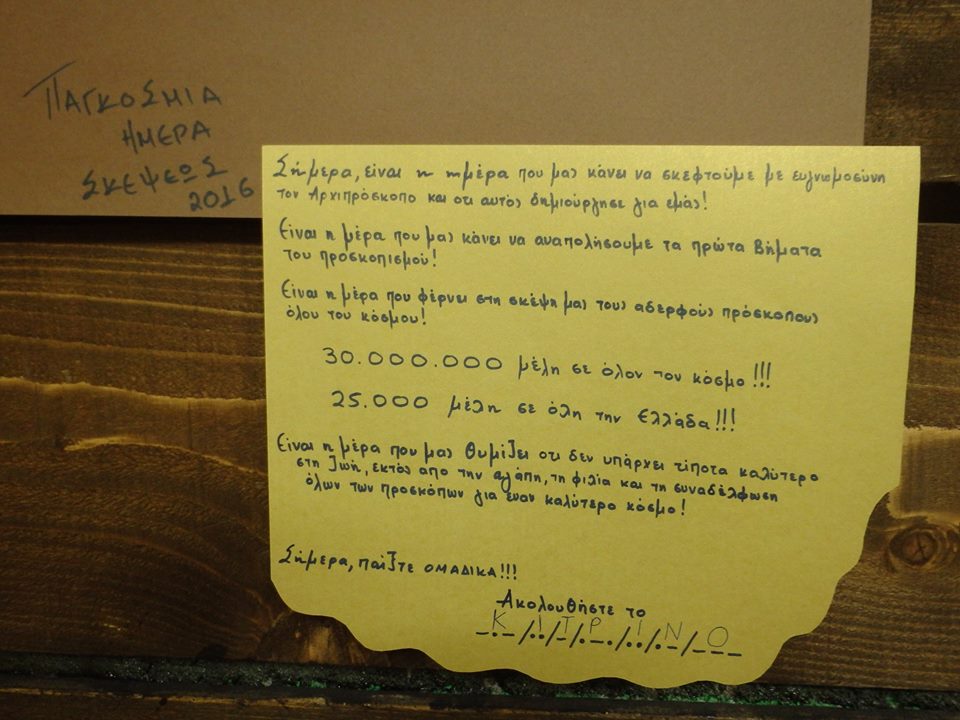 ΠΑΓΚΟΣΜΙΑ
ΗΜΕΡΑ
ΣΚΕΨΕΩΣ
2016
Σήμερα, είναι η ημέρα που μας κάνει να σκεφτούμε με ευγνωμοσύνη
τον Αρχιπρόσκοπο και οτι αυτός δημιούργησε για εμάς!
Είναι η μέρα που μας κάνει να αναπολήσουμε τα πρώτα βήματα
του προσκοπισμού!
Είναι η μέρα που φέρνει στη σκέψη μας τους αδερφούς πρόσκοπους
όλου του κόσμου!
30.000.000 μέλη σε όλον τον κόσμο!!!
25.000 μέλη σε όλη την Ελλάδα!!!
Είναι η μέρα που μας θυμίζει οτι δεν υπάρχει τίποτα καλύτερο
στη ζωή, εκτός απο την αγάπη, τη φιλία και τη συναδέλφωση
όλων των προσκόπων για έναν καλύτερο κόσμο!
Σήμερα, παίξτε ΟΜΑΔΙΚΑ!!!
Ακολουθήστε το
Κ Ι Τ Ρ Ι Ν Ο
-.-/../-/.-./../-./---